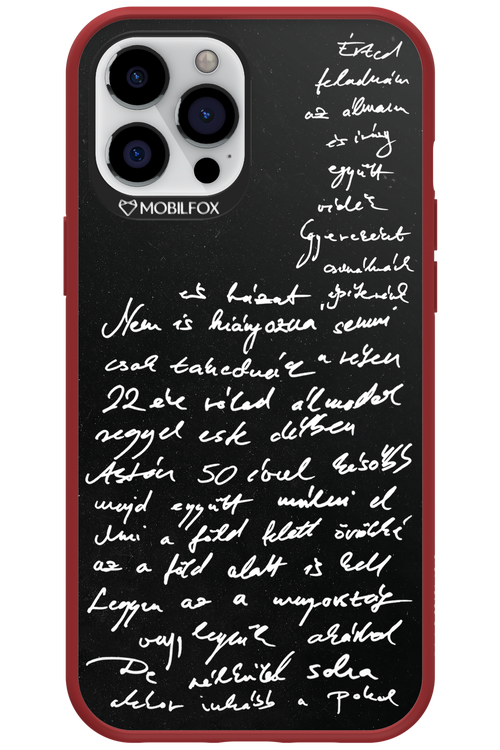 MOBILFOX
Érted
feladnám
az álmam
és irány
együtt
vidék
Gyerekeket
csinálnánk
és házat építenénk
Nem is hiányozna semmi
csak takednék a
22 éve rólad álmodok
reggel este délben
Aztán 50 évvel később
majd együtt múlni el
Ami a föld felett örökké
az a föld alatt is kell
Legyen az a menyország
vagy legyünk akárhol
De nélküled soha
akkor inkább a Pokol